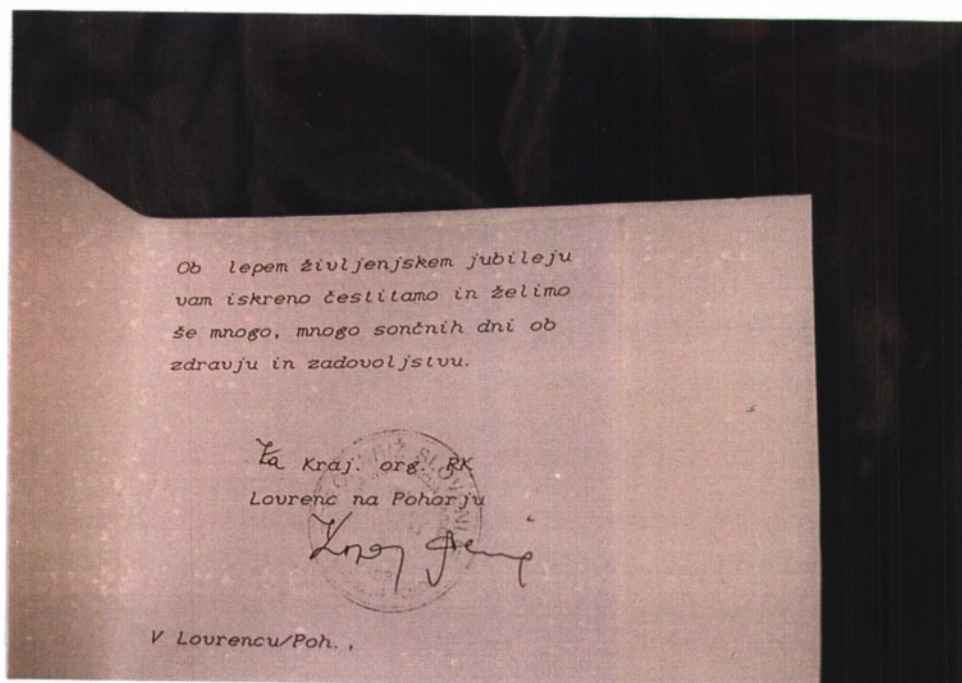 Ob lepem življenjskem jubileju
vam iskreno čestitamo in želimo
še mnogo, mnogo sončnih dni ob
zdravju in zadovoljstvu.
Za Kraj. org. RK
Lovrenc na Pohorju
KRIŽ SLOVENI
V Lovrencu/Poh.,